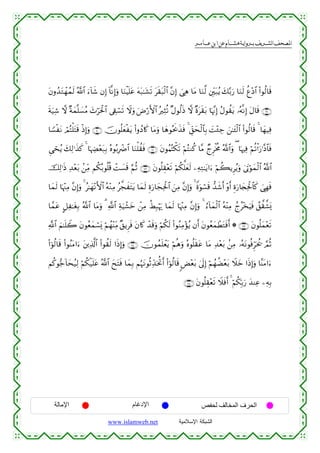 المصحف الشريف برواية هشام عن ابن عامر
قَالُواْ ٱدْعُ لَنَا رَبَّكَ يُبَيِّن لَّنَا مَا هِىَ إِنَّ ٱلْبَقَرَ تَشَٰبَهَ عَلَيْنَا وَإِنَّآ إِن شَآءَ ٱللَّهُ لَمُهْتَدُونَ
۝ قَالَ إِنَّهُۥ يَقُولُ إِنَّهَا بَقَرَةٌ لَّا ذَلُولٌ تُثِيرُ ٱلْأَرْضَ وَلَا تَسْقِى ٱلْحَرْثَ مُسَلَّمَةٌ لَّا شِيَةَ
فِيهَا ۚ قَالُواْ ٱلْـَٰٔنَ جِئْتَ بِٱلْحَقِّ ۚ فَذَبَحُوهَا وَمَا كَادُواْ يَفْعَلُونَ ۝ وَإِذْ قَتَلْتُمْ نَفْسًا
فَٱدَّٰرَٰٔتُمْ فِيهَا ۖ وَٱللَّهُ مُخْرِجٌ مَّا كُنتُمْ تَكْتُمُونَ ۝ فَقُلْنَا ٱضْرِبُوهُ بِبَعْضِهَا ۚ كَذَٰلِكَ يُحْىِ
ٱللَّهُ ٱلْمَوْتَىٰ وَيُرِيكُمْ ءَايَٰتِهِۦ لَعَلَّكُمْ تَعْقِلُونَ ۝ ثُمَّ قَسَتْ قُلُوبُكُم مِّنۢ بَعْدِ ذَٰلِكَ
فَهِىَ كَٱلْحِجَارَةِ أَوْ أَشَدُّ قَسْوَةً ۚ وَإِنَّ مِنَ ٱلْحِجَارَةِ لَمَا يَتَفَجَّرُ مِنْهُ ٱلْأَنْهَٰرُ ۚ وَإِنَّ مِنْهَا لَمَا
يَشَّقَّقُ فَيَخْرُجُ مِنْهُ ٱلْمَآءُ ۚ وَإِنَّ مِنْهَا لَمَا يَهْبِطُ مِنْ خَشْيَةِ ٱللَّهِ ۗ وَمَا ٱللَّهُ بِغَٰفِلٍ عَمَّا
تَعْمَلُونَ ۝ ۞ أَفَتَطْمَعُونَ أَن يُؤْمِنُواْ لَكُمْ وَقَدْ كَانَ فَرِيقٌ مِّنْهُمْ يَسْمَعُونَ كَلَٰمَ ٱللَّهِ
ثُمَّ يُحَرِّفُونَهُۥ مِنۢ بَعْدِ مَا عَقَلُوهُ وَهُمْ يَعْلَمُونَ ۝ وَإِذَا لَقُواْ ٱلَّذِينَ ءَامَنُواْ قَالُوٓاْ
ءَامَنَّا وَإِذَا خَلَا بَعْضُهُمْ إِلَىٰ بَعْضٍ قَالُوٓاْ أَتُحَدِّثُونَهُم بِمَا فَتَحَ ٱللَّهُ عَلَيْكُمْ لِيُحَآجُّوكُم
بِهِۦ عِندَ رَبِّكُمْ ۚ أَفَلَا تَعْقِلُونَ ۝
الحرف المخالف لحفص الإدغام الإمالة
الشبكة الإسلامية www.islamweb.net